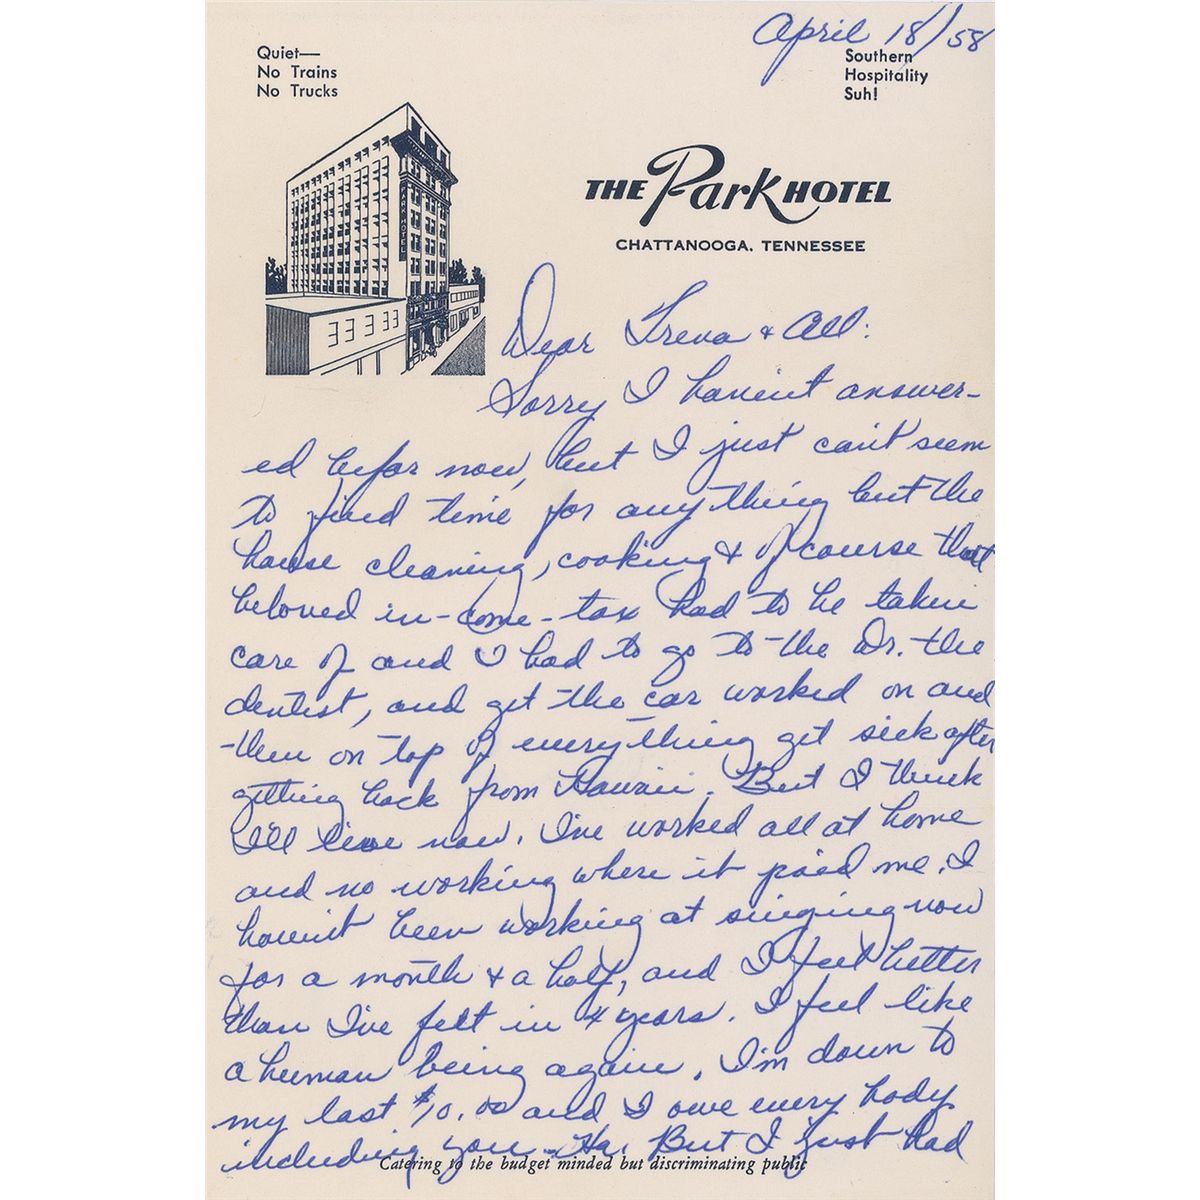 April 18/58
Quiet—
No Trains
No Trucks
Southern
Hospitality
Suh!
PARK HOTEL
THE Park HOTEL
CHATTANOOGA, TENNESSEE
Dear Treva & All:
Sorry I haven't answer-
ed befor now, but I just can't seem
to find time for any thing but the
house cleaning, cooking & of course that
beloved in-come-tax had to be taken
care of and I had to go to the Dr. the
dentist, and get the car worked on and
then on top of every thing get sick after
getting back from Hawaii. But I think
I'll live now. I've worked all at home
and no working where it paid me. I
haven't been working at singing now
for a month & a half, and I feel better
than I've felt in 4 years. I feel like
a human being again. I'm down to
my last $10.00 and I owe every body
including you - Ha. But I just had
Catering to the budget minded but discriminating public